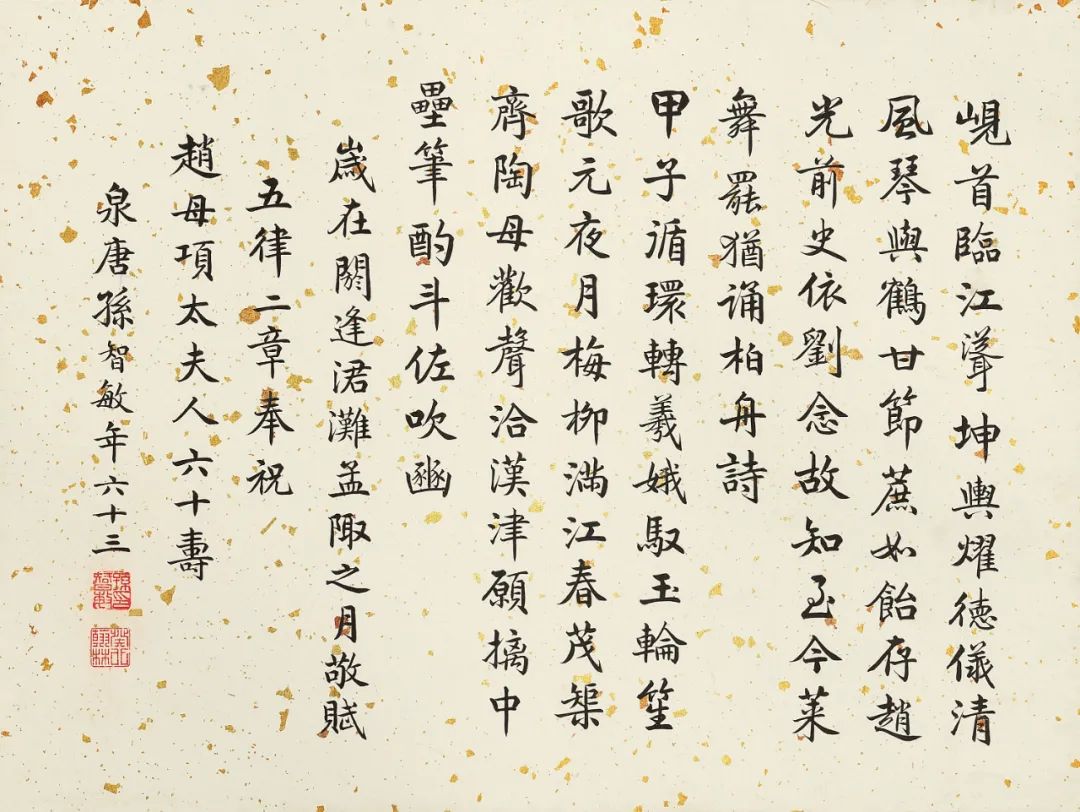 峴首臨江聳坤輿耀德儀清
風琴與鶴甘節蔗如飴存趙
光前史依劉念故知至今萊
舞罷猶誦柏舟詩
甲子循環轉羲娥馭玉輪笙
歌元夜月梅柳滿江春茂榘
齊陶母歡聲洽漢津願摛中
壘筆酌斗佐吹豳
歲在閼逢涒灘孟陬之月敬賦
五律二章奉祝
趙母項太夫人六十壽
泉唐孫智敏年六十三
孫印智敏
癸卯翰林